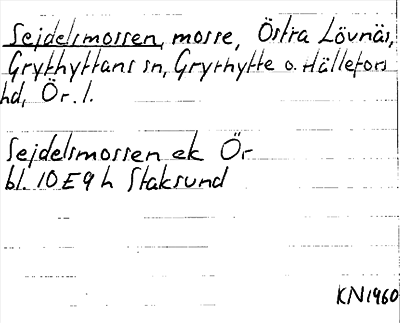 Sejdelsmossen, mosse, Östra Lövnäs,
Grythyttans sn, Grythytte o. Hällefors
hd, Ör. l.
Sejdelsmossen ek Ör
bl. 10E9h Staksund
KN1960